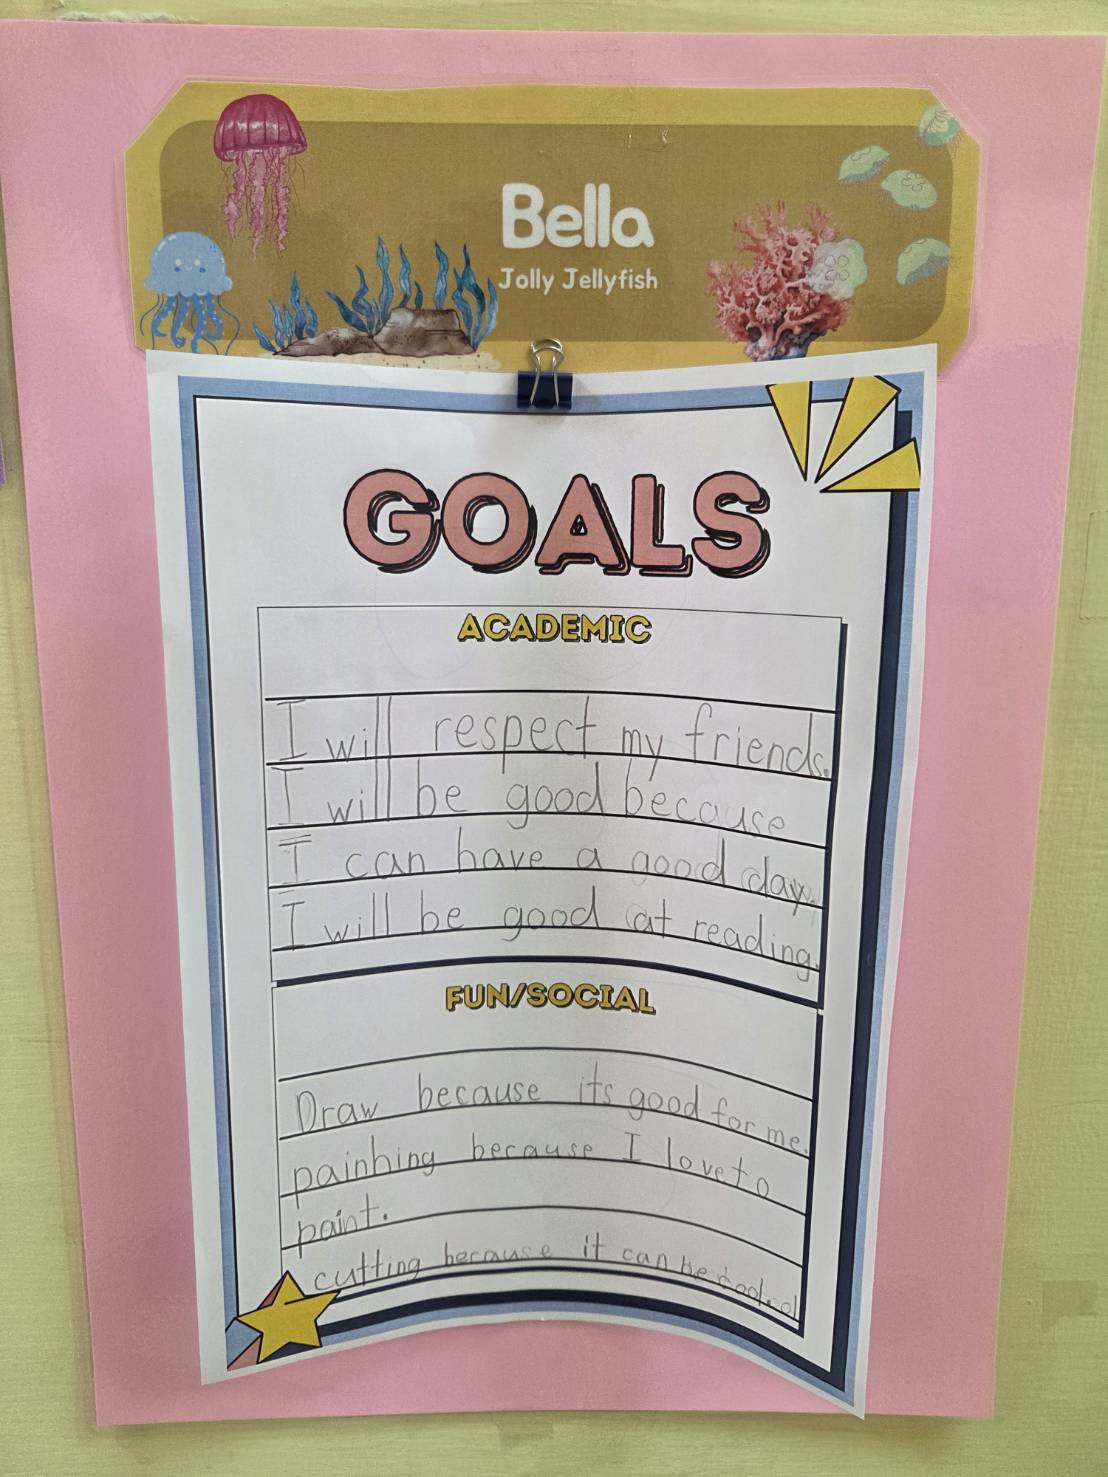 Bella
Jolly Jellyfish
GOALS
ACADEMIC
I will respect my friends.
I will be good because
I can have a good day.
I will be good at reading.
FUN/SOCIAL
Draw because it's good for me.
painhing because I love to
paint.
cutting because it can be